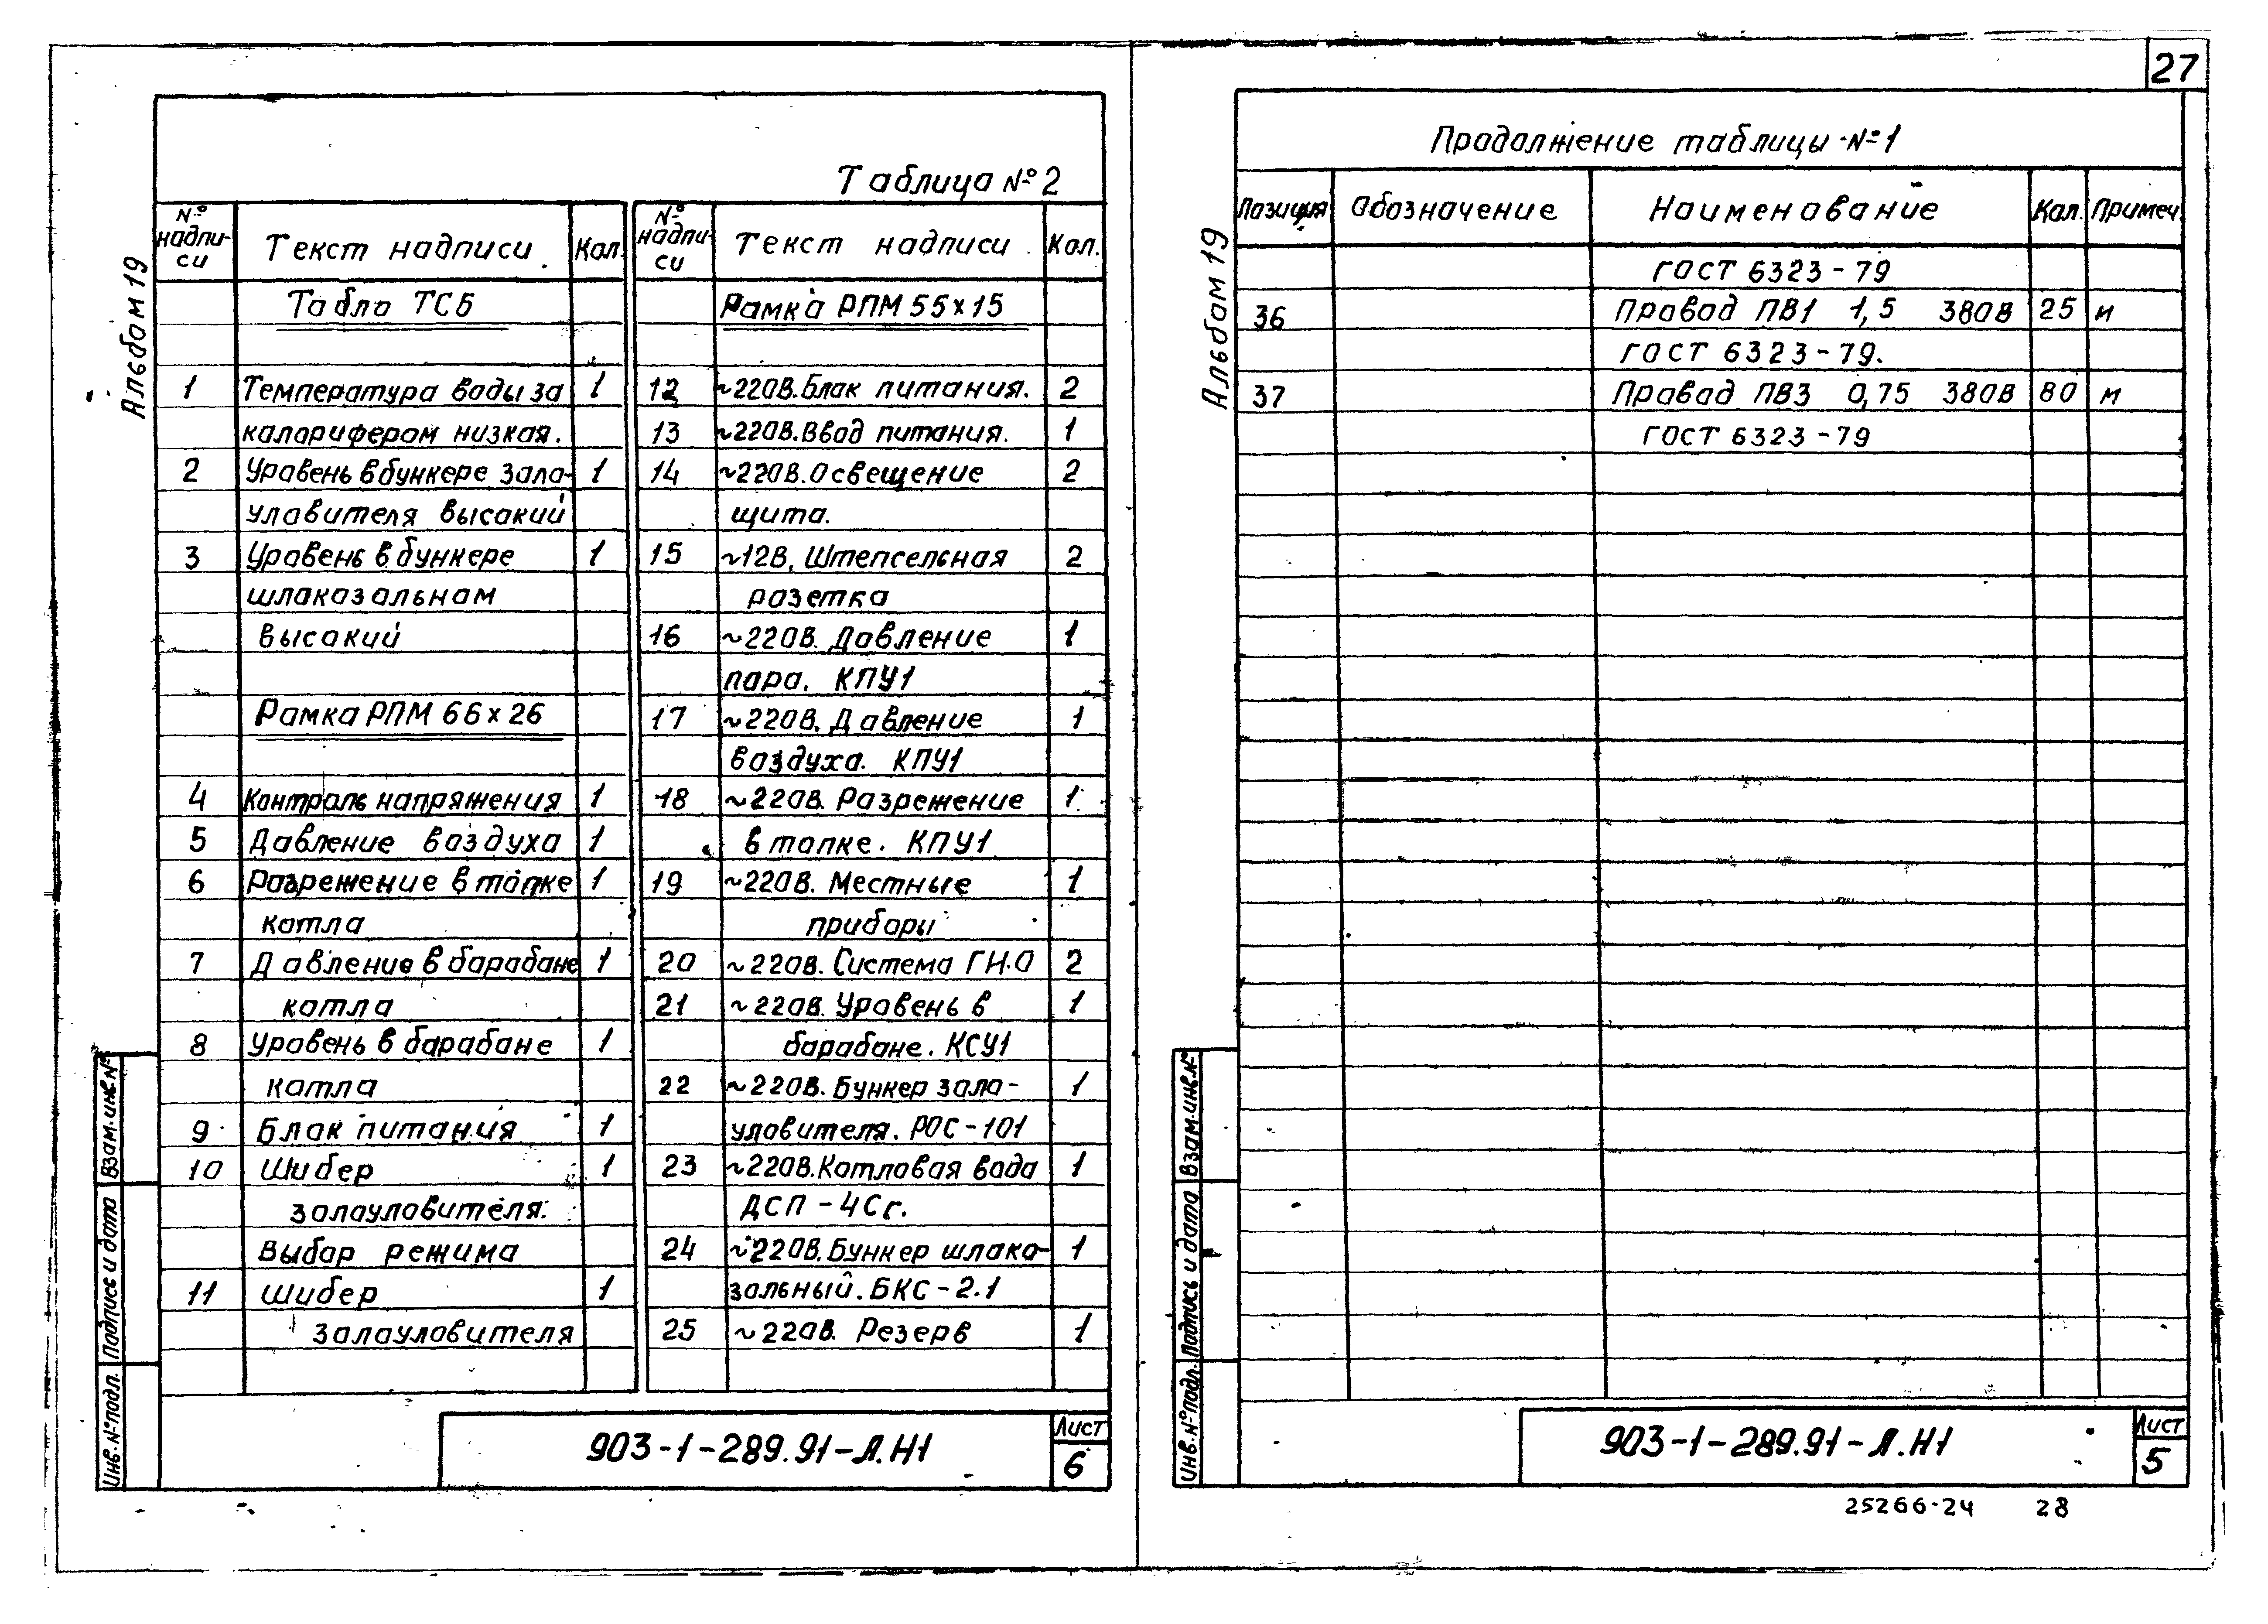 27
Альбом 19
Таблица №2
№ надпи-си Текст надписи Кол. № надпи-си Текст надписи Кол.
Табло ТСБ
1 Температура воды за 1
калорифером низкая.
2 Уровень в бункере золо- 1
уловителя высокий
3 Уровень в бункере 1
шлакозольном
высокий
Рамка РПМ 66х26
4 Контроль напряжения 1
5 Давление воздуха 1
6 Разрежение в топке 1
котла
7 Давление в барабане 1
котла
8 Уровень в барабане 1
котла
9 Блок питания 1
10 Шибер 1
золоуловителя.
Выбор режима
11 Шибер 1
золоуловителя
Рамка РПМ 55х15
12 ~220В. Блок питания. 2
13 ~220В. Ввод питания. 1
14 ~220В. Освещение 2
щита.
15 ~12В. Штепсельная 2
розетка
16 ~220В. Давление 1
пара. КПУ1
17 ~220В. Давление 1
воздуха. КПУ1
18 ~220В. Разрежение 1
в топке. КПУ1
19 ~220В. Местные 1
приборы
20 ~220В. Система ГН.О 2
21 ~220В. Уровень в 1
барабане. КСУ1
22 ~220В. Бункер золо- 1
уловителя. РОС-101
23 ~220В. Котловая вода 1
ДСП-4Сг.
24 ~220В. Бункер шлако- 1
зольный. БКС-2.1
25 ~220В. Резерв 1
Взам.инв.№
Подпись и дата
Инв.№подл.
903-1-289.91-Л.Н1
Лист
6
Альбом 19
Продолжение таблицы №1
Позиция Обозначение Наименование Кол. Примеч.
ГОСТ 6323-79
36 Провод ПВ1 1,5 380В 25 м
ГОСТ 6323-79.
37 Провод ПВ3 0,75 380В 80 м
ГОСТ 6323-79
Взам.инв.№
Подпись и дата
Инв.№подл.
903-1-289.91-Л.Н1
Лист
5
25266-24 28